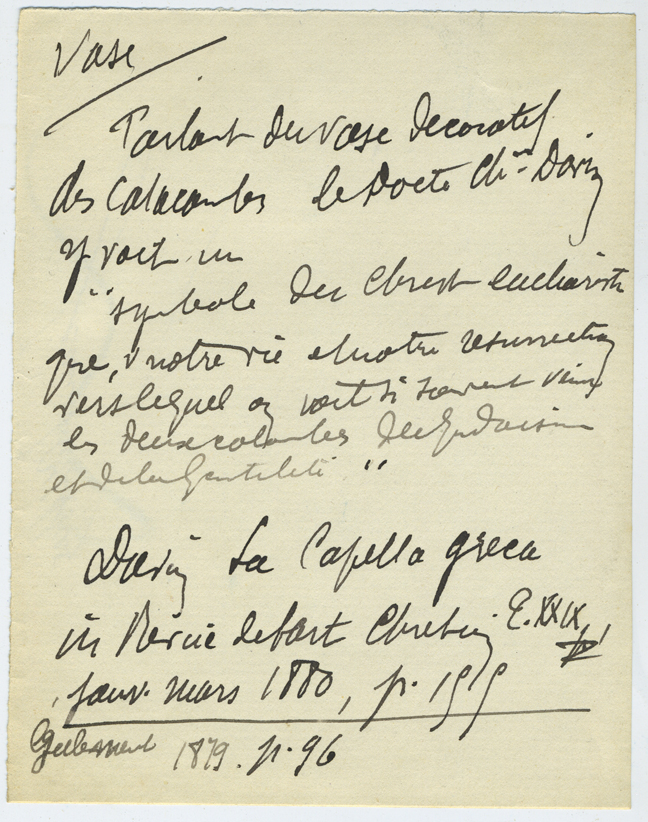 Vase
Parlant du vase decoratif
des Catacombes le Docte Ch.ne Davin
y voit un
"symbole du Christ eucharisti
que, notre vie et notre resurrection
vers lequel on voit si souvent venir
les deux colombes du Judaisme
et de la Gentilité "
Davin La Capella greca
in Revue de l'art Chretien
janv. mars 1880, p.
1879. p. 96